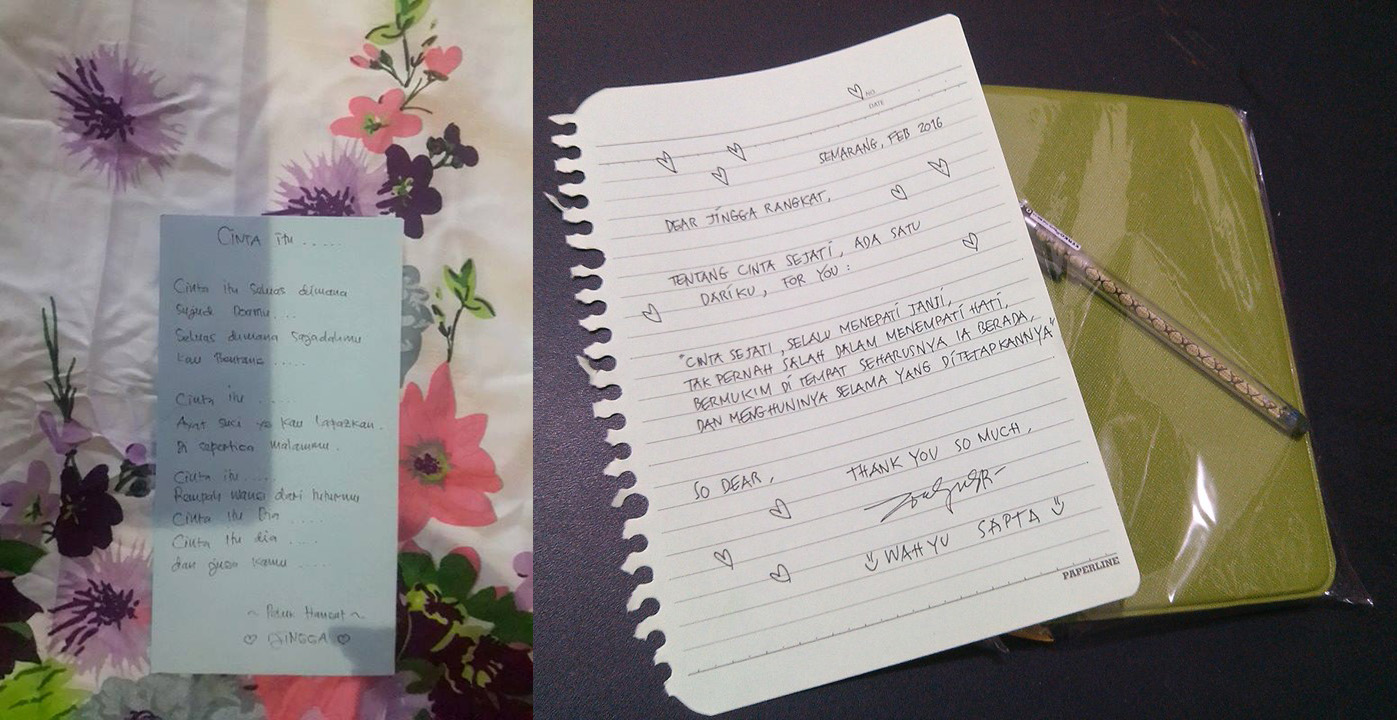 CINTA itu .....
Cinta itu Seluas dimana
Sujud Doamu....
Seluas dimana Sajadahmu
Kau Bentang .....
Cinta itu .....
Ayat suci yg kau lafazkan.
Di sepertiga malammu.
Cinta itu....
Rempah wangi dari tuturmu
Cinta itu Dia ....
Cinta itu dia ....
dan juga kamu ....
~ Peluk Hangat ~
JINGGA
NO
DATE
SEMARANG, FEB 2016
DEAR JINGGA RANGKAT,
TENTANG CINTA SEJATI, ADA SATU
DARIKU, FOR YOU :
"CINTA SEJATI, SELALU MENEPATI JANJI,
TAK PERNAH SALAH DALAM MENEMPATI HATI,
BERMUKIM DI TEMPAT SEHARUSNYA IA BERADA,
DAN MENGHUNINYA SELAMA YANG DITETAPKANNYA"
SO DEAR, THANK YOU SO MUCH,
WAHYU SAPTA
PAPERLINE